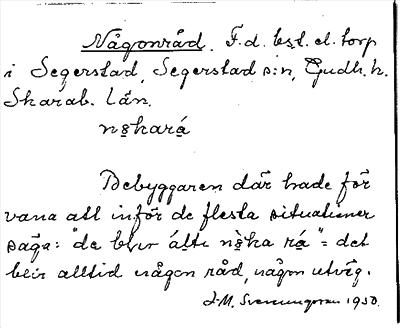 Någonråd. F.d. bst. el. torp
i Segerstad, Segerstad s:n, Gudh. h.
Skarab. län.
nǫkará
Bebyggaren där hade för
vana att inför de flesta situationer
säga: "de blir álti nǫ̀ka rá" = det
blir alltid någon råd, någon utväg.
J.M. Svenungsson 1930.